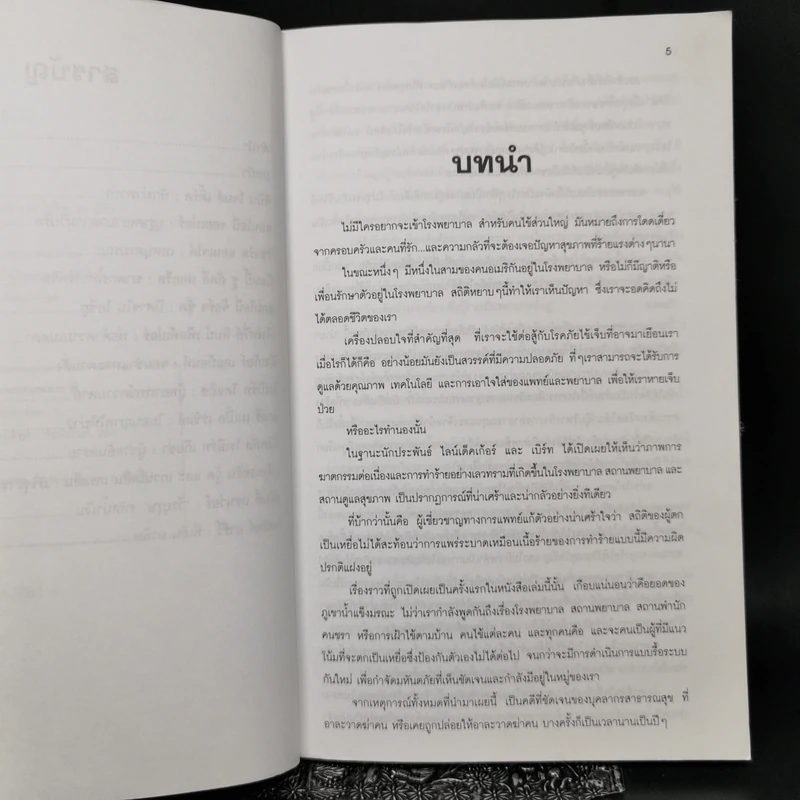 สารบัญ
5
บทนำ
ไม่มีใครอยากจะเข้าโรงพยาบาล สำหรับคนไข้ส่วนใหญ่ มันหมายถึงการโดดเดี่ยว
จากครอบครัวและคนที่รัก...และความกลัวที่จะต้องเจอปัญหาสุขภาพที่ร้ายแรงต่างๆนานา
ในขณะหนึ่งๆ มีหนึ่งในสามของคนอเมริกันอยู่ในโรงพยาบาล หรือไม่ก็มีญาติหรือ
เพื่อนรักษาตัวอยู่ในโรงพยาบาล สถิติหยาบๆนี้ทำให้เราเห็นปัญหา ซึ่งเราจะอดคิดถึงไม่
ได้ตลอดชีวิตของเรา
เครื่องปลอบใจที่สำคัญที่สุด ที่เราจะใช้ต่อสู้กับโรคภัยไข้เจ็บที่อาจมาเยือนเรา
เมื่อไรก็ได้ก็คือ อย่างน้อยมันยังเป็นสวรรค์ที่มีความปลอดภัย ที่ๆเราสามารถจะได้รับการ
ดูแลด้วยคุณภาพ เทคโนโลยี และการเอาใจใส่ของแพทย์และพยาบาล เพื่อให้เราหายเจ็บ
ป่วย
หรืออะไรทำนองนั้น
ในฐานะนักประพันธ์ ไลน์เด็คเก้อร์ และ เบิร์ท ได้เปิดเผยให้เห็นว่าภาพการ
ฆาตกรรมต่อเนื่องและการทำร้ายอย่างเลวทรามที่เกิดขึ้นในโรงพยาบาล สถานพยาบาล และ
สถานดูแลสุขภาพ เป็นปรากฏการณ์ที่น่าเศร้าและน่ากลัวอย่างยิ่งทีเดียว
ที่บ้ากว่านั้นคือ ผู้เชี่ยวชาญทางการแพทย์แก้ตัวอย่างน่าเศร้าใจว่า สถิติของผู้ตก
เป็นเหยื่อไม่ได้สะท้อนว่าการแพร่ระบาดเหมือนเนื้อร้ายของการทำร้ายแบบนี้มีความผิด
ปรกติแฝงอยู่
เรื่องราวที่ถูกเปิดเผยเป็นครั้งแรกในหนังสือเล่มนี้นั้น เกือบแน่นอนว่าคือยอดของ
ภูเขาน้ำแข็งมรณะ ไม่ว่าเรากำลังพูดกันถึงเรื่องโรงพยาบาล สถานพยาบาล สถานพำนัก
คนชรา หรือการเฝ้าไข้ตามบ้าน คนไข้แต่ละคน และทุกคนคือ และจะคนเป็นผู้ที่มีแนว
โน้มที่จะตกเป็นเหยื่อซึ่งป้องกันตัวเองไม่ได้ต่อไป จนกว่าจะมีการดำเนินการแบบรื้อระบบ
กันใหม่ เพื่อกำจัดมหันตภัยที่เห็นชัดเจนและกำลังมีอยู่ในหมู่ของเรา
จากเหตุการณ์ทั้งหมดที่นำมาเผยนี้ เป็นคดีที่ชัดเจนของบุคลากรสาธารณสุข ที่
อาละวาดฆ่าคน หรือเคยถูกปล่อยให้อาละวาดฆ่าคน บางครั้งก็เป็นเวลานานเป็นปีๆ